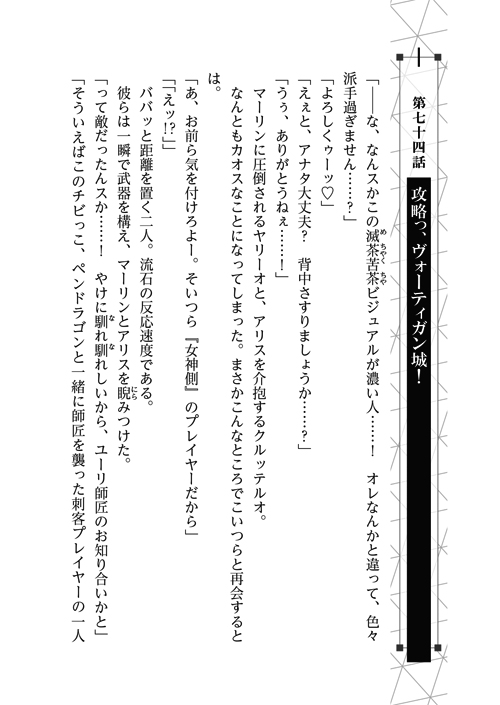 第七十四話
攻略っ、ヴォーティガン城！
「――な、なんスかこの滅茶苦茶ビジュアルが濃い人……！　オレなんかと違って、色々
派手過ぎません……？」
「よろしくゥーッ♡」
「えぇと、アナタ大丈夫？　背中さすりましょうか……？」
「うぅ、ありがとうねぇ……！」
　マーリンに圧倒されるヤリーオと、アリスを介抱するクルッテルオ。
　なんともカオスなことになってしまった。まさかこんなところでこいつらと再会すると
は。
「あ、お前ら気を付けろよー。そいつら『女神側』のプレイヤーだから」
「「えッ!?」」
　ババッと距離を置く二人。流石の反応速度である。
　彼らは一瞬で武器を構え、マーリンとアリスを睨みつけた。
「って敵だったんスか……！　やけに馴れ馴れしいから、ユーリ師匠のお知り合いかと」
「そういえばこのチビっこ、ペンドラゴンと一緒に師匠を襲った刺客プレイヤーの一人